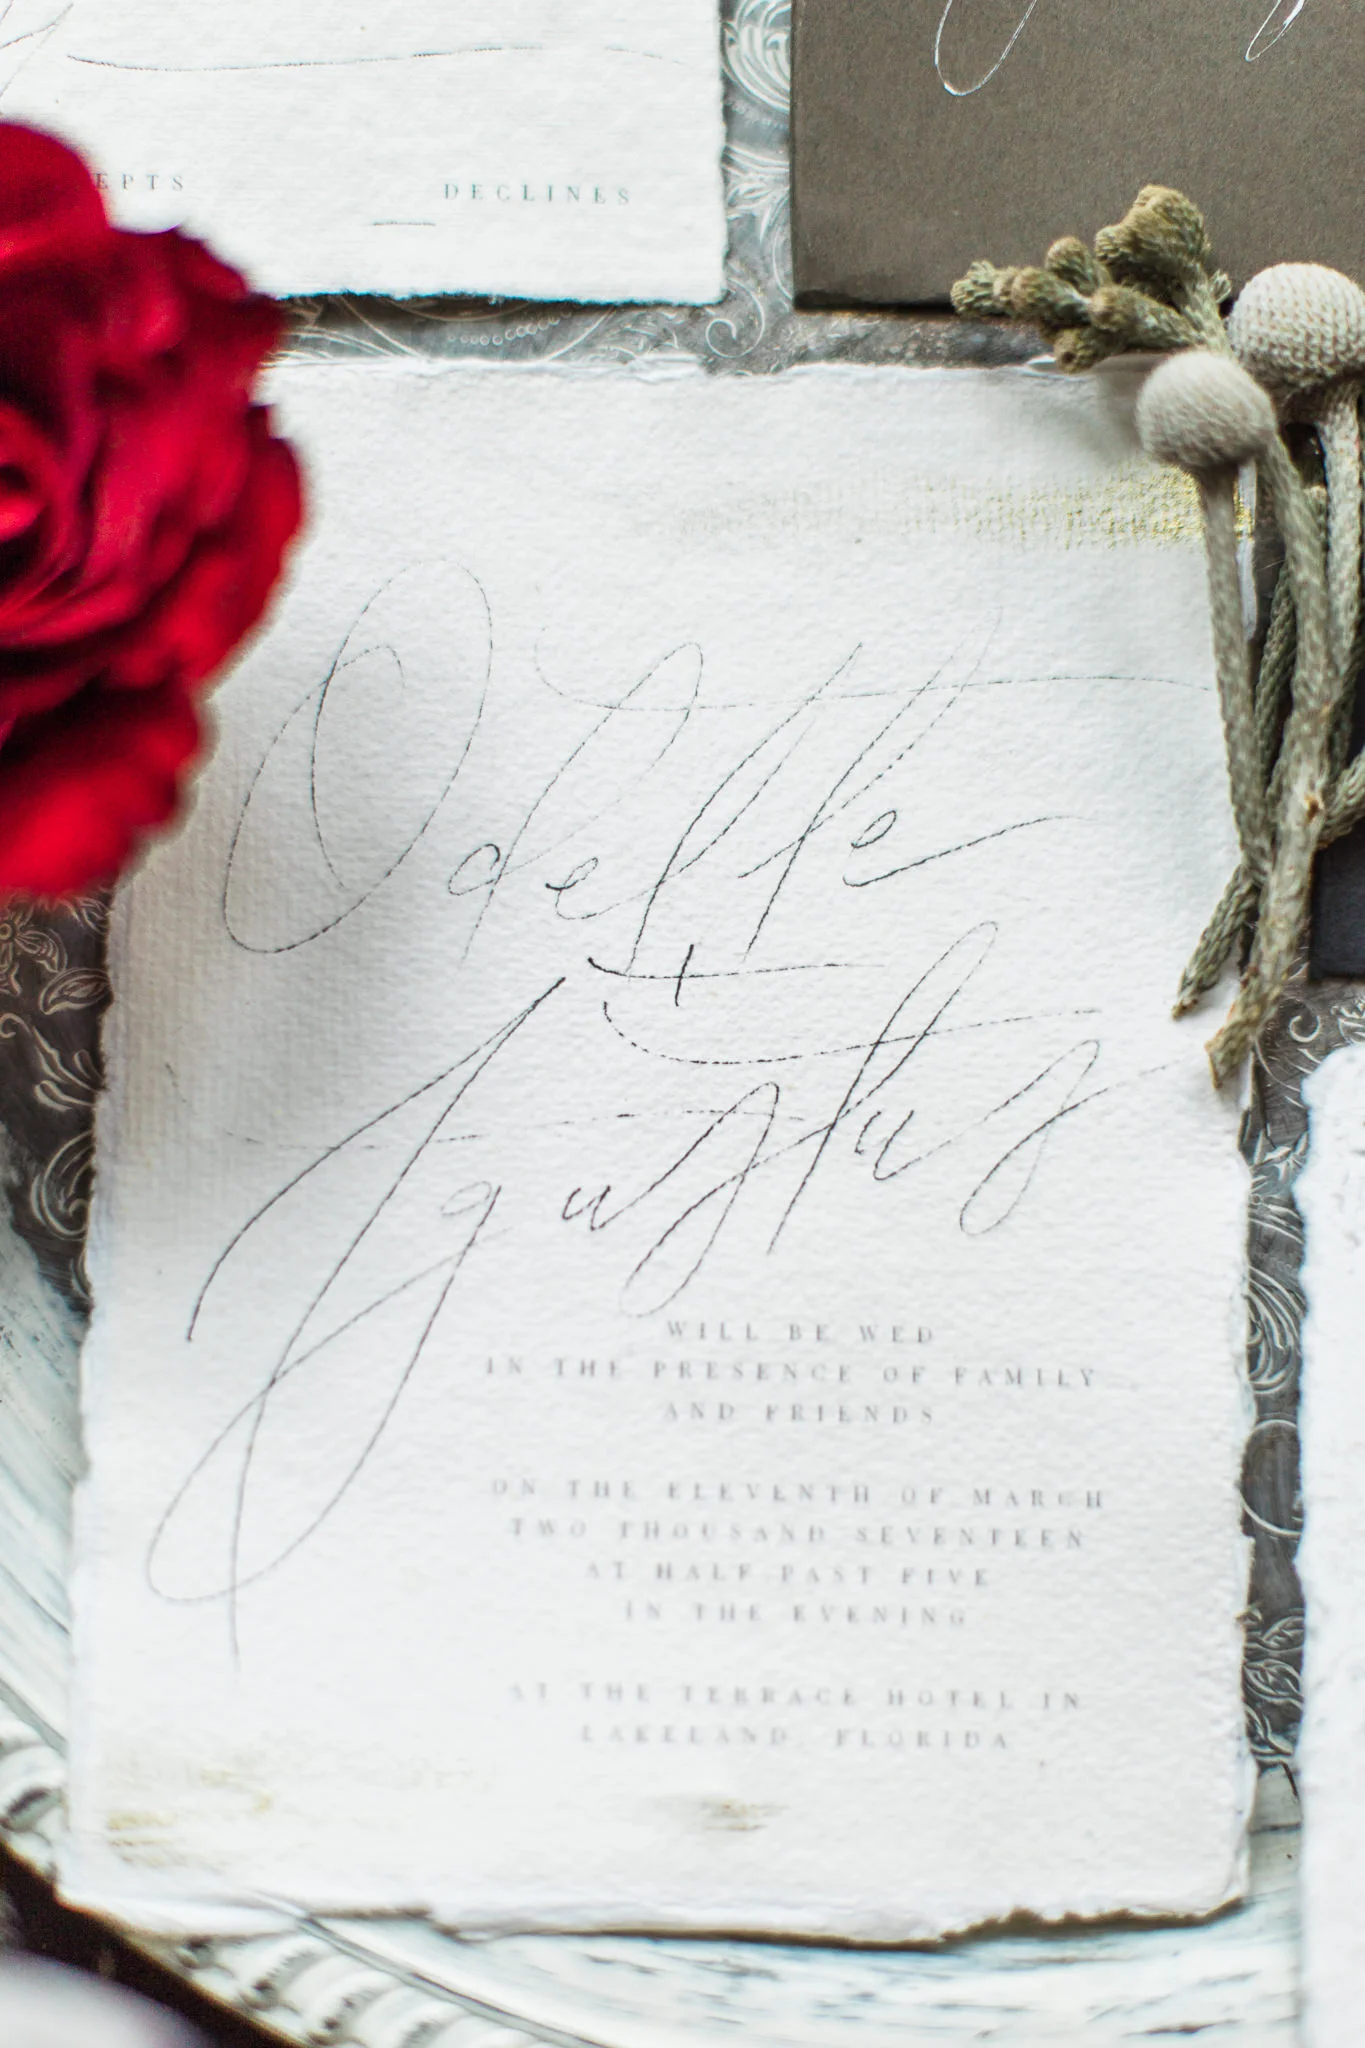 DECLINES
Odette
+
Gustus
WILL BE WED
IN THE PRESENCE OF FAMILY
AND FRIENDS
ON THE ELEVENTH OF MARCH
TWO THOUSAND SEVENTEEN
AT HALF PAST FIVE
IN THE EVENING
AT THE TERRACE HOTEL IN
LAKELAND, FLORIDA